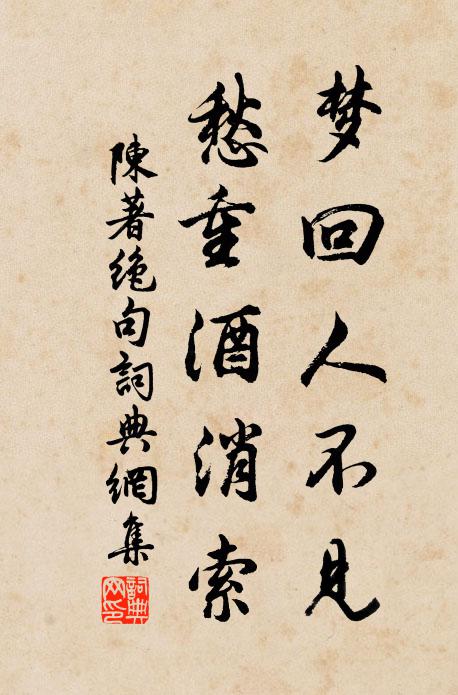 梦回人不见
愁重酒消索
陳著绝句詞典網集
詞典网印